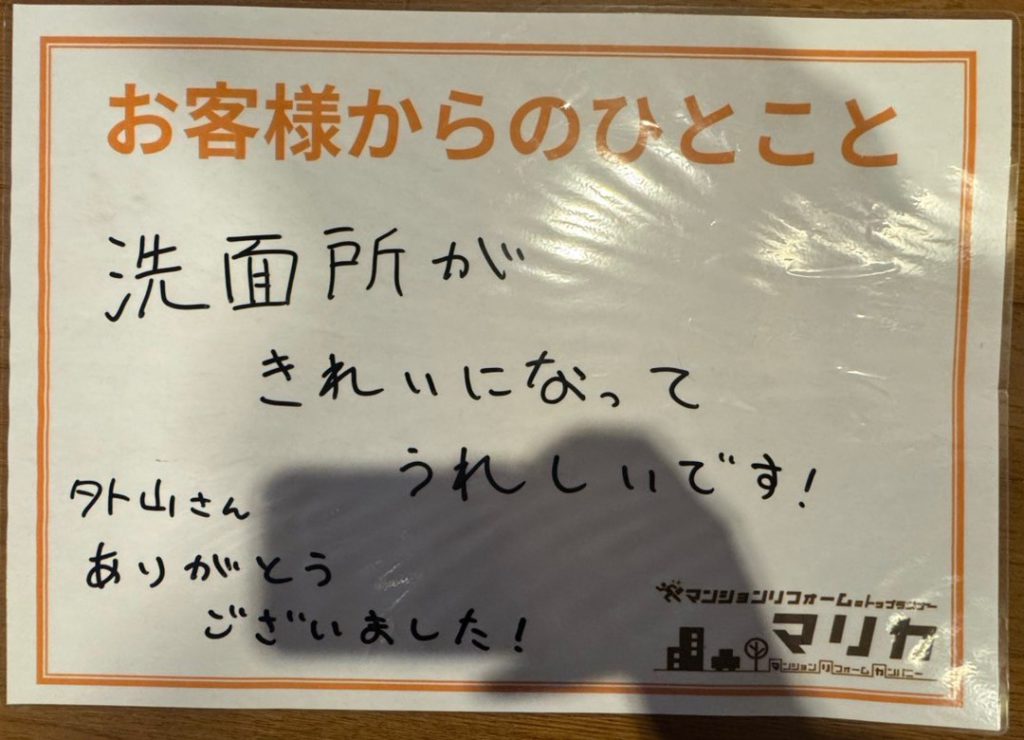 お客様からのひとこと
洗面所が
きれいになって
うれしいです!
外山さん
ありがとう
ございました!
マンションリフォームのトップランナー
マリカ
マンションリフォームカンパニー